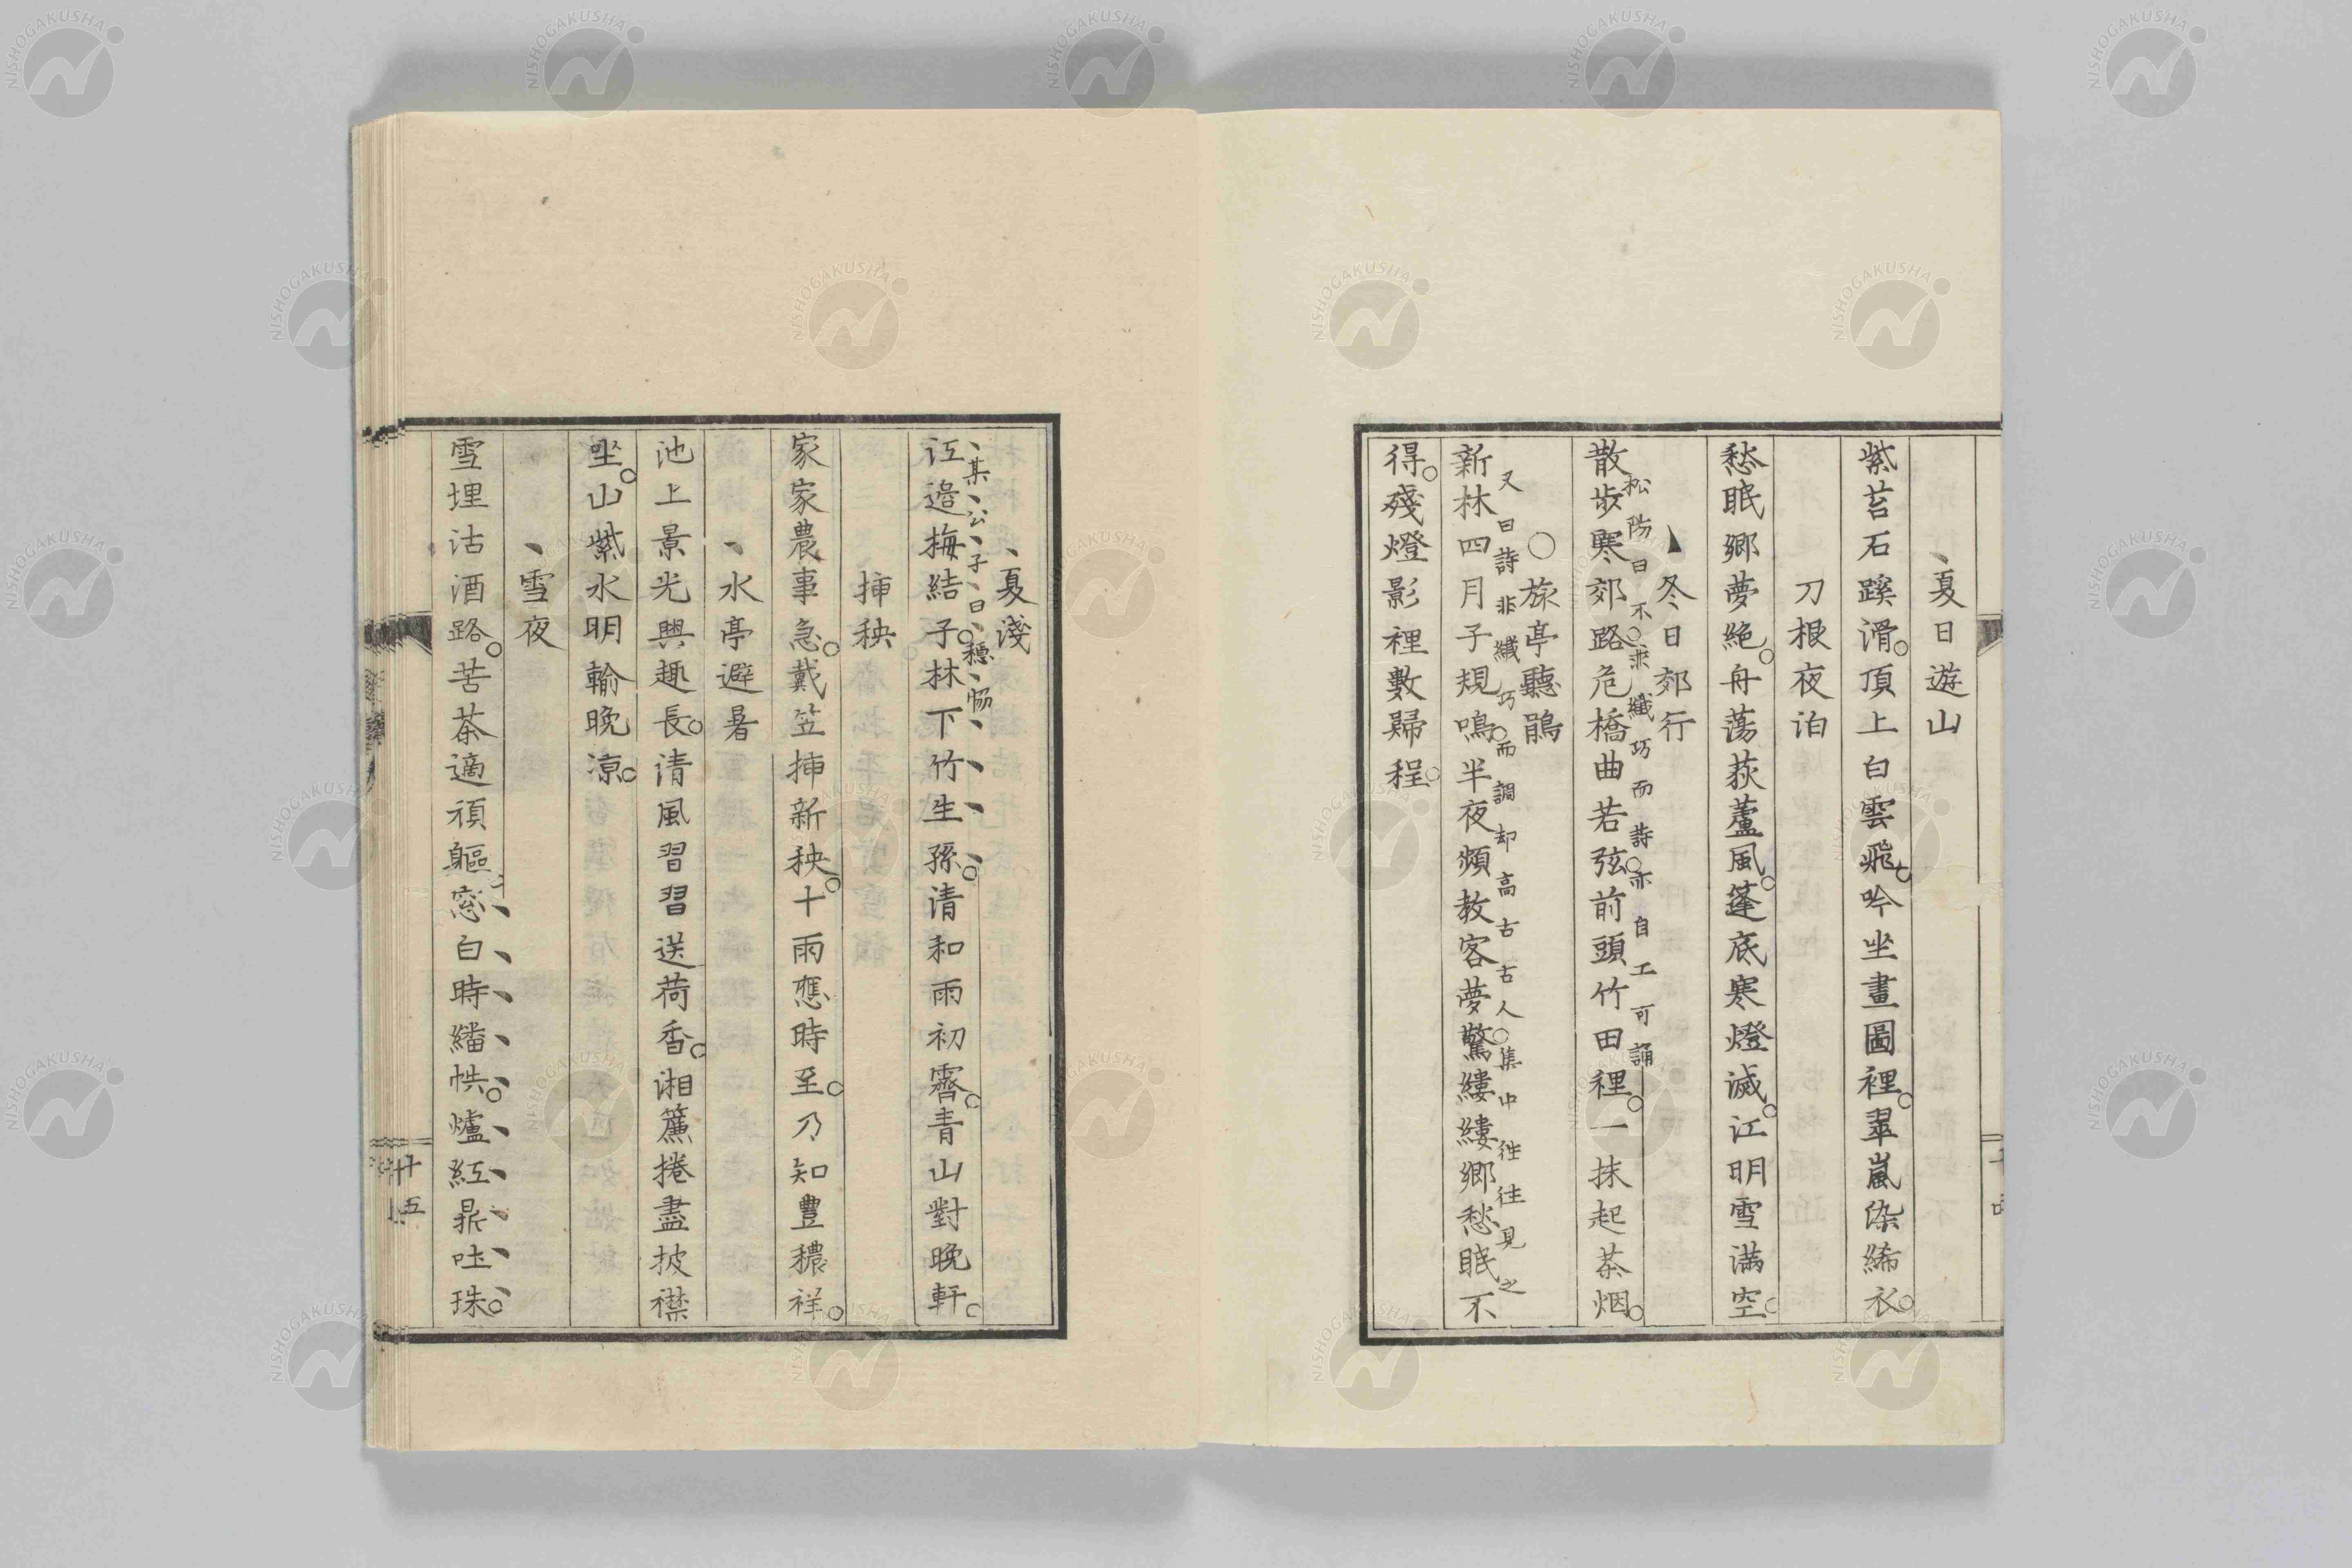 夏日遊山
紫苔石蹊滑。頂上白雲飛。吟坐畫圖裡。翠嵐染絺衣。
刀根夜泊
愁眠郷夢絶。舟蕩荻蘆風。篷底寒燈滅。江明雪満空。
冬日郊行
松防曰不求纖巧而詩亦自工可誦
散歩寒郊路。危橋曲若弦。前頭竹田裡。一抹起茶烟。
旅亭聽鵑
又曰詩非纖巧而調却高古古人集中往往見之
新林四月子規鳴。半夜頻教客夢驚。縷縷郷愁眠不
得。殘燈影裡數歸程。
夏淺
某公子曰穩
江邉梅結子。林下竹生孫。清和雨初霽。青山對晩軒。
挿秧
家家農事急。戴笠挿新秧。十雨應時至。乃知豊穰祥。
水亭避暑
池上景光興趣長。清風習習送荷香。湘簾捲盡披襟
坐。山紫水明輸晩凉。
雪夜
雪埋沽酒路。苦茶適頑軀。窓白時繙帙。爐紅鼎吐珠。
十五
NISHOGAKUSHA